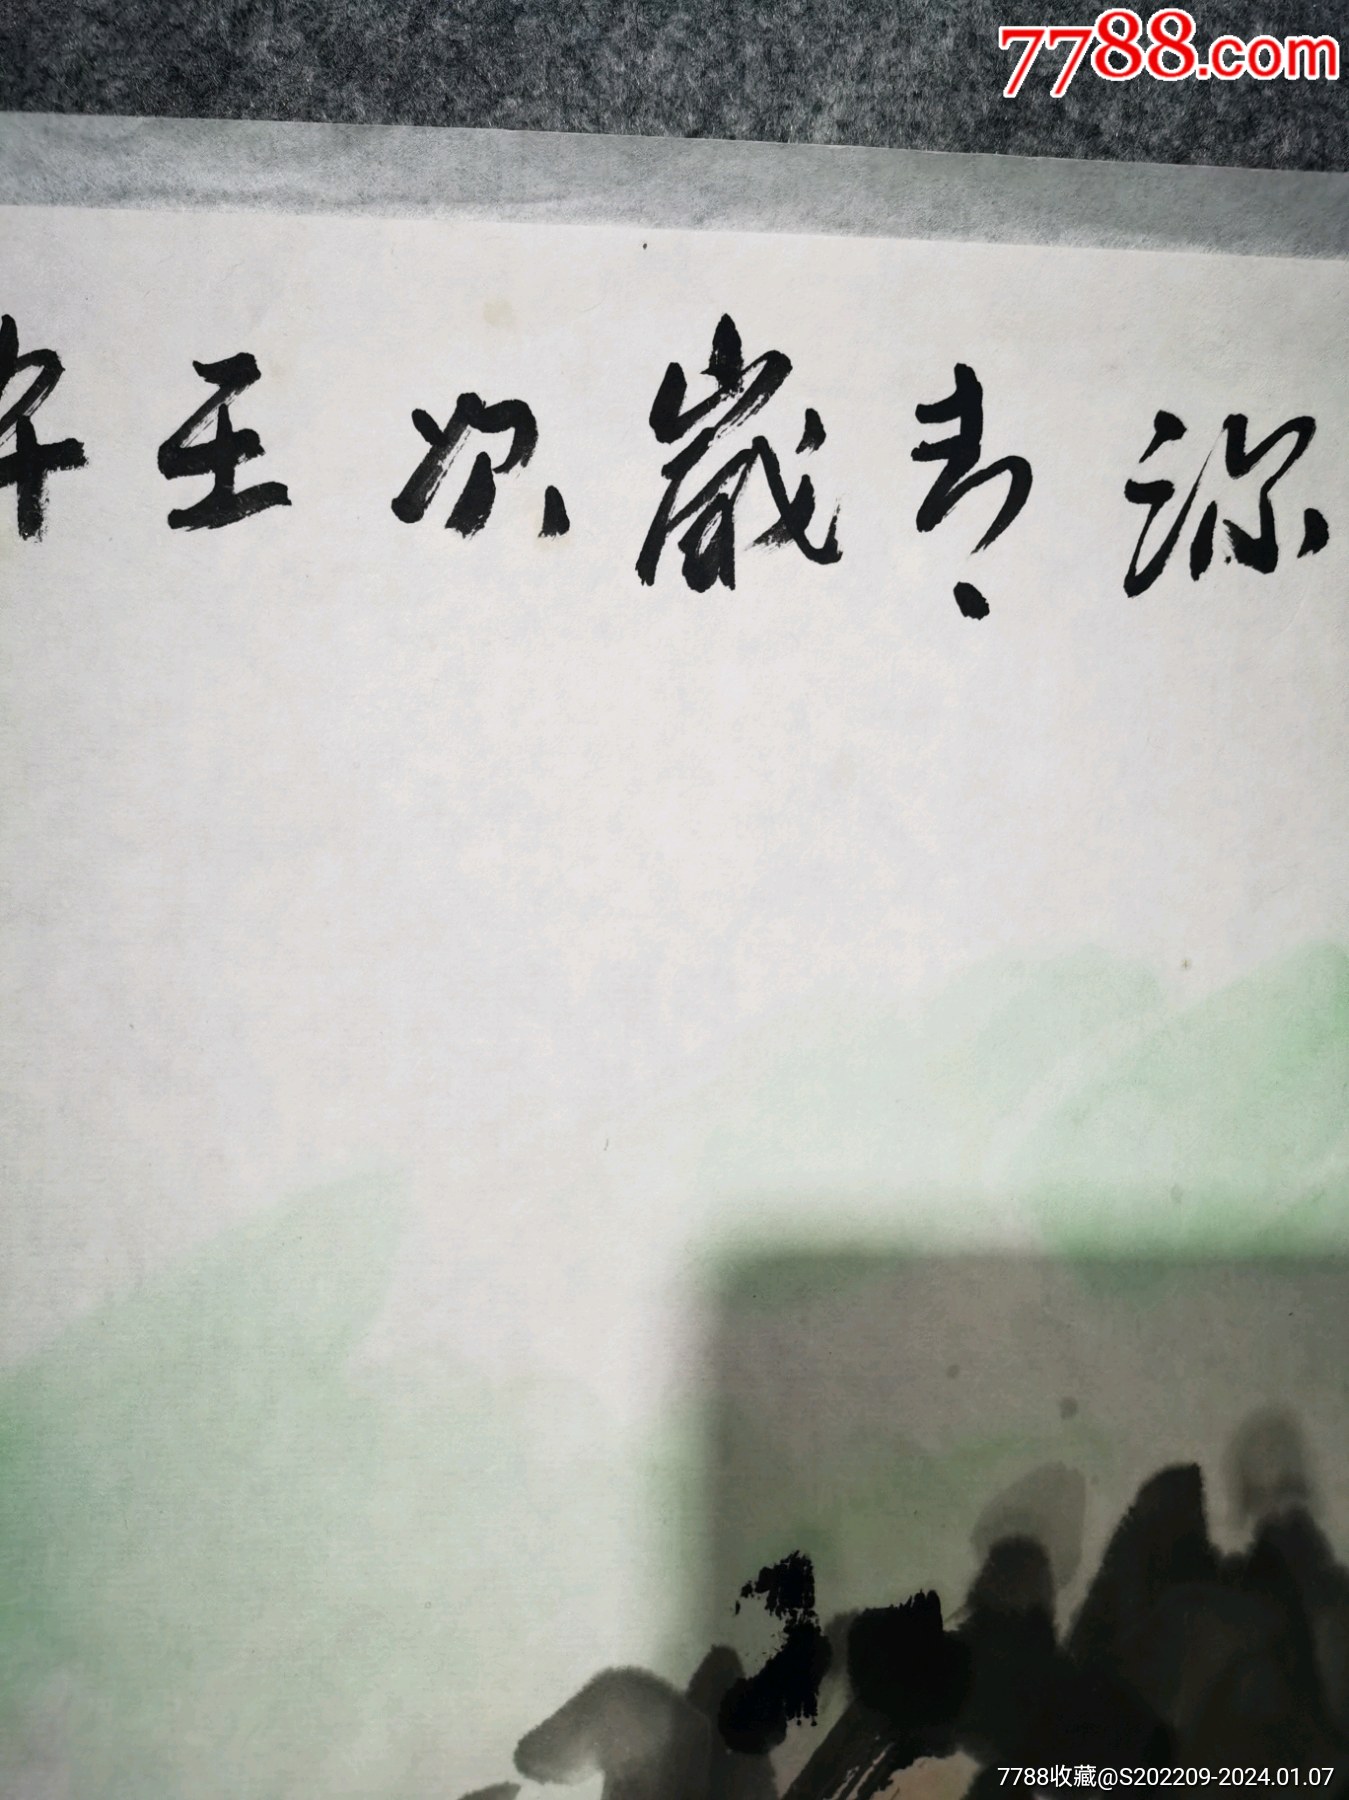 7788.com
寿歲次壬午
7788收藏@S202209-2024.01.07